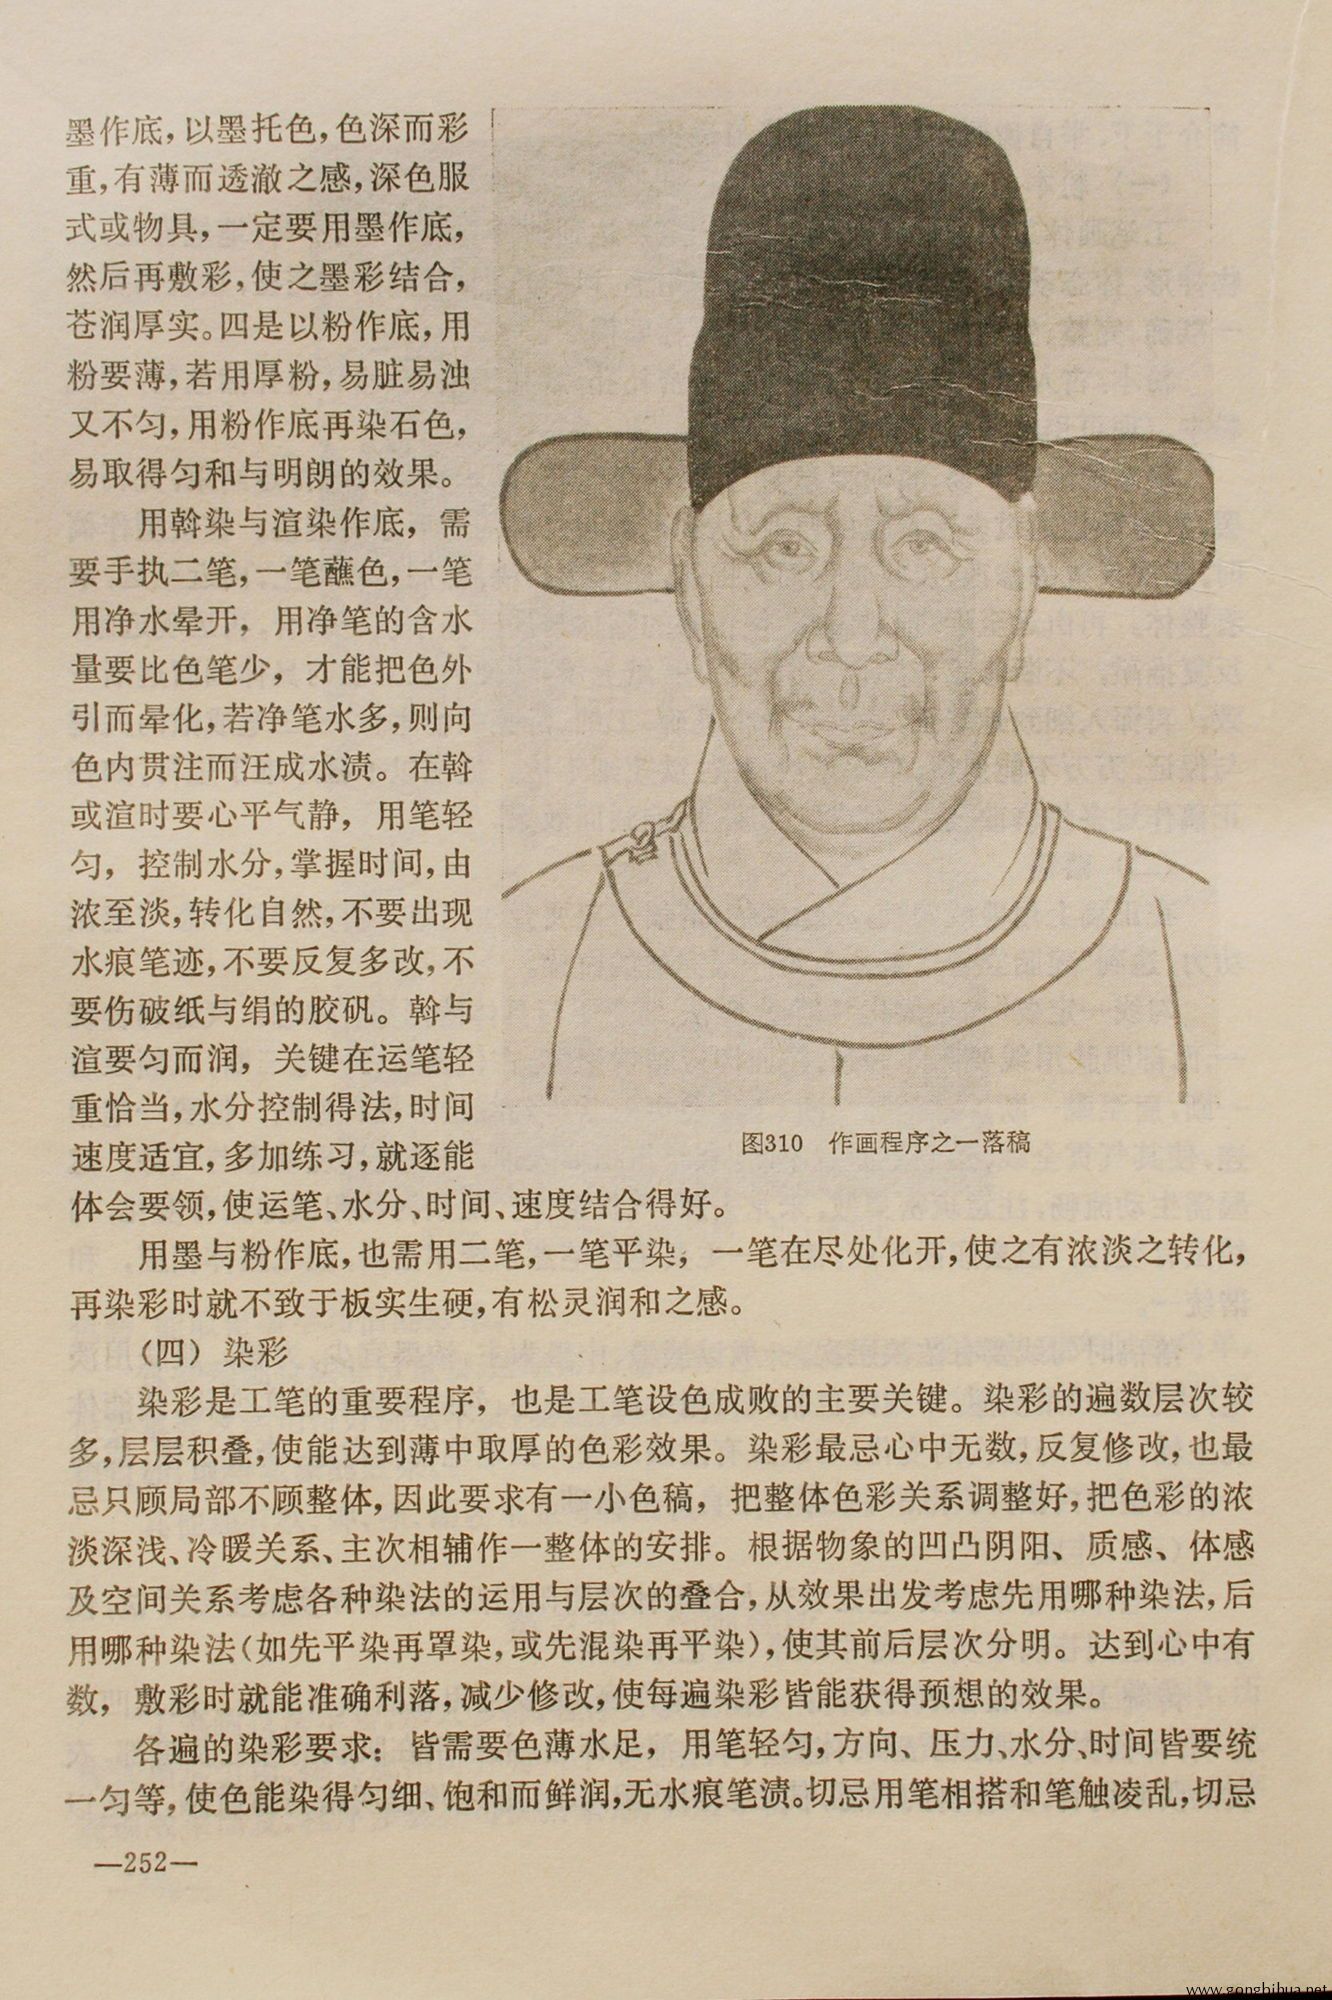 墨作底，以墨托色，色深而彩
重，有薄而透澈之感，深色服
式或物具，一定要用墨作底，
然后再敷彩，使之墨彩结合，
苍润厚实。四是以粉作底，用
粉要薄，若用厚粉，易脏易浊
又不匀，用粉作底再染石色，
易取得匀和与明朗的效果。
用斡染与渲染作底，需
要手执二笔，一笔蘸色，一笔
用净水晕开，用净笔的含水
量要比色笔少，才能把色外
引而晕化，若净笔水多，则向
色内贯注而汪成水渍。在斡
或渲时要心平气静，用笔轻
匀，控制水分，掌握时间，由
浓至淡，转化自然，不要出现
水痕笔迹，不要反复多改，不
要伤破纸与绢的胶矾。斡与
渲要匀而润，关键在运笔轻
重恰当，水分控制得法，时间
速度适宜，多加练习，就逐能
体会要领，使运笔、水分、时间、速度结合得好。
图310 作画程序之一落稿
用墨与粉作底，也需用二笔，一笔平染，一笔在尽处化开，使之有浓淡之转化，
再染彩时就不致于板实生硬，有松灵润和之感。
（四）染彩
染彩是工笔的重要程序，也是工笔设色成败的主要关键。染彩的遍数层次较
多，层层积叠，使能达到薄中取厚的色彩效果。染彩最忌心中无数，反复修改，也最
忌只顾局部不顾整体，因此要求有一小色稿，把整体色彩关系调整好，把色彩的浓
淡深浅、冷暖关系、主次相辅作一整体的安排。根据物象的凹凸阴阳、质感、体感
及空间关系考虑各种染法的运用与层次的叠合，从效果出发考虑先用哪种染法，后
用哪种染法（如先平染再罩染，或先混染再平染），使其前后层次分明。达到心中有
数，敷彩时就能准确利落，减少修改，使每遍染彩皆能获得预想的效果。
各遍的染彩要求：皆需要色薄水足，用笔轻匀，方向、压力、水分、时间皆要统
一匀等，使色能染得匀细、饱和而鲜润，无水痕笔渍。切忌用笔相搭和笔触凌乱，切忌
—252—
www.gongbihua.net